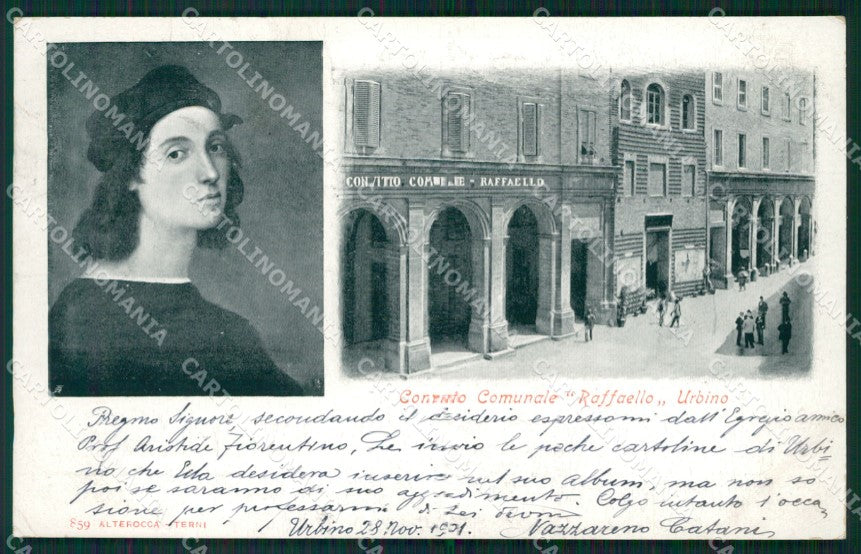 CONVITTO COMUNALE - RAFFAELLO
Convitto Comunale "Raffaello„ Urbino
Pregmo Signore, secondando il desiderio espressomi dall'Egregio amico
Prof. Aristide Fiorentino, Le invio le poche cartoline di Urbi=
no che Ella desidera inserire nel suo album, ma non so
poi se saranno di suo aggradimento. Colgo intanto l'occa=
sione per professarmi di Lei Devmo
Urbino 28 Nov. 1901. Nazzareno Catani
859 ALTEROCCA - TERNI
CARTOLINOMANIA